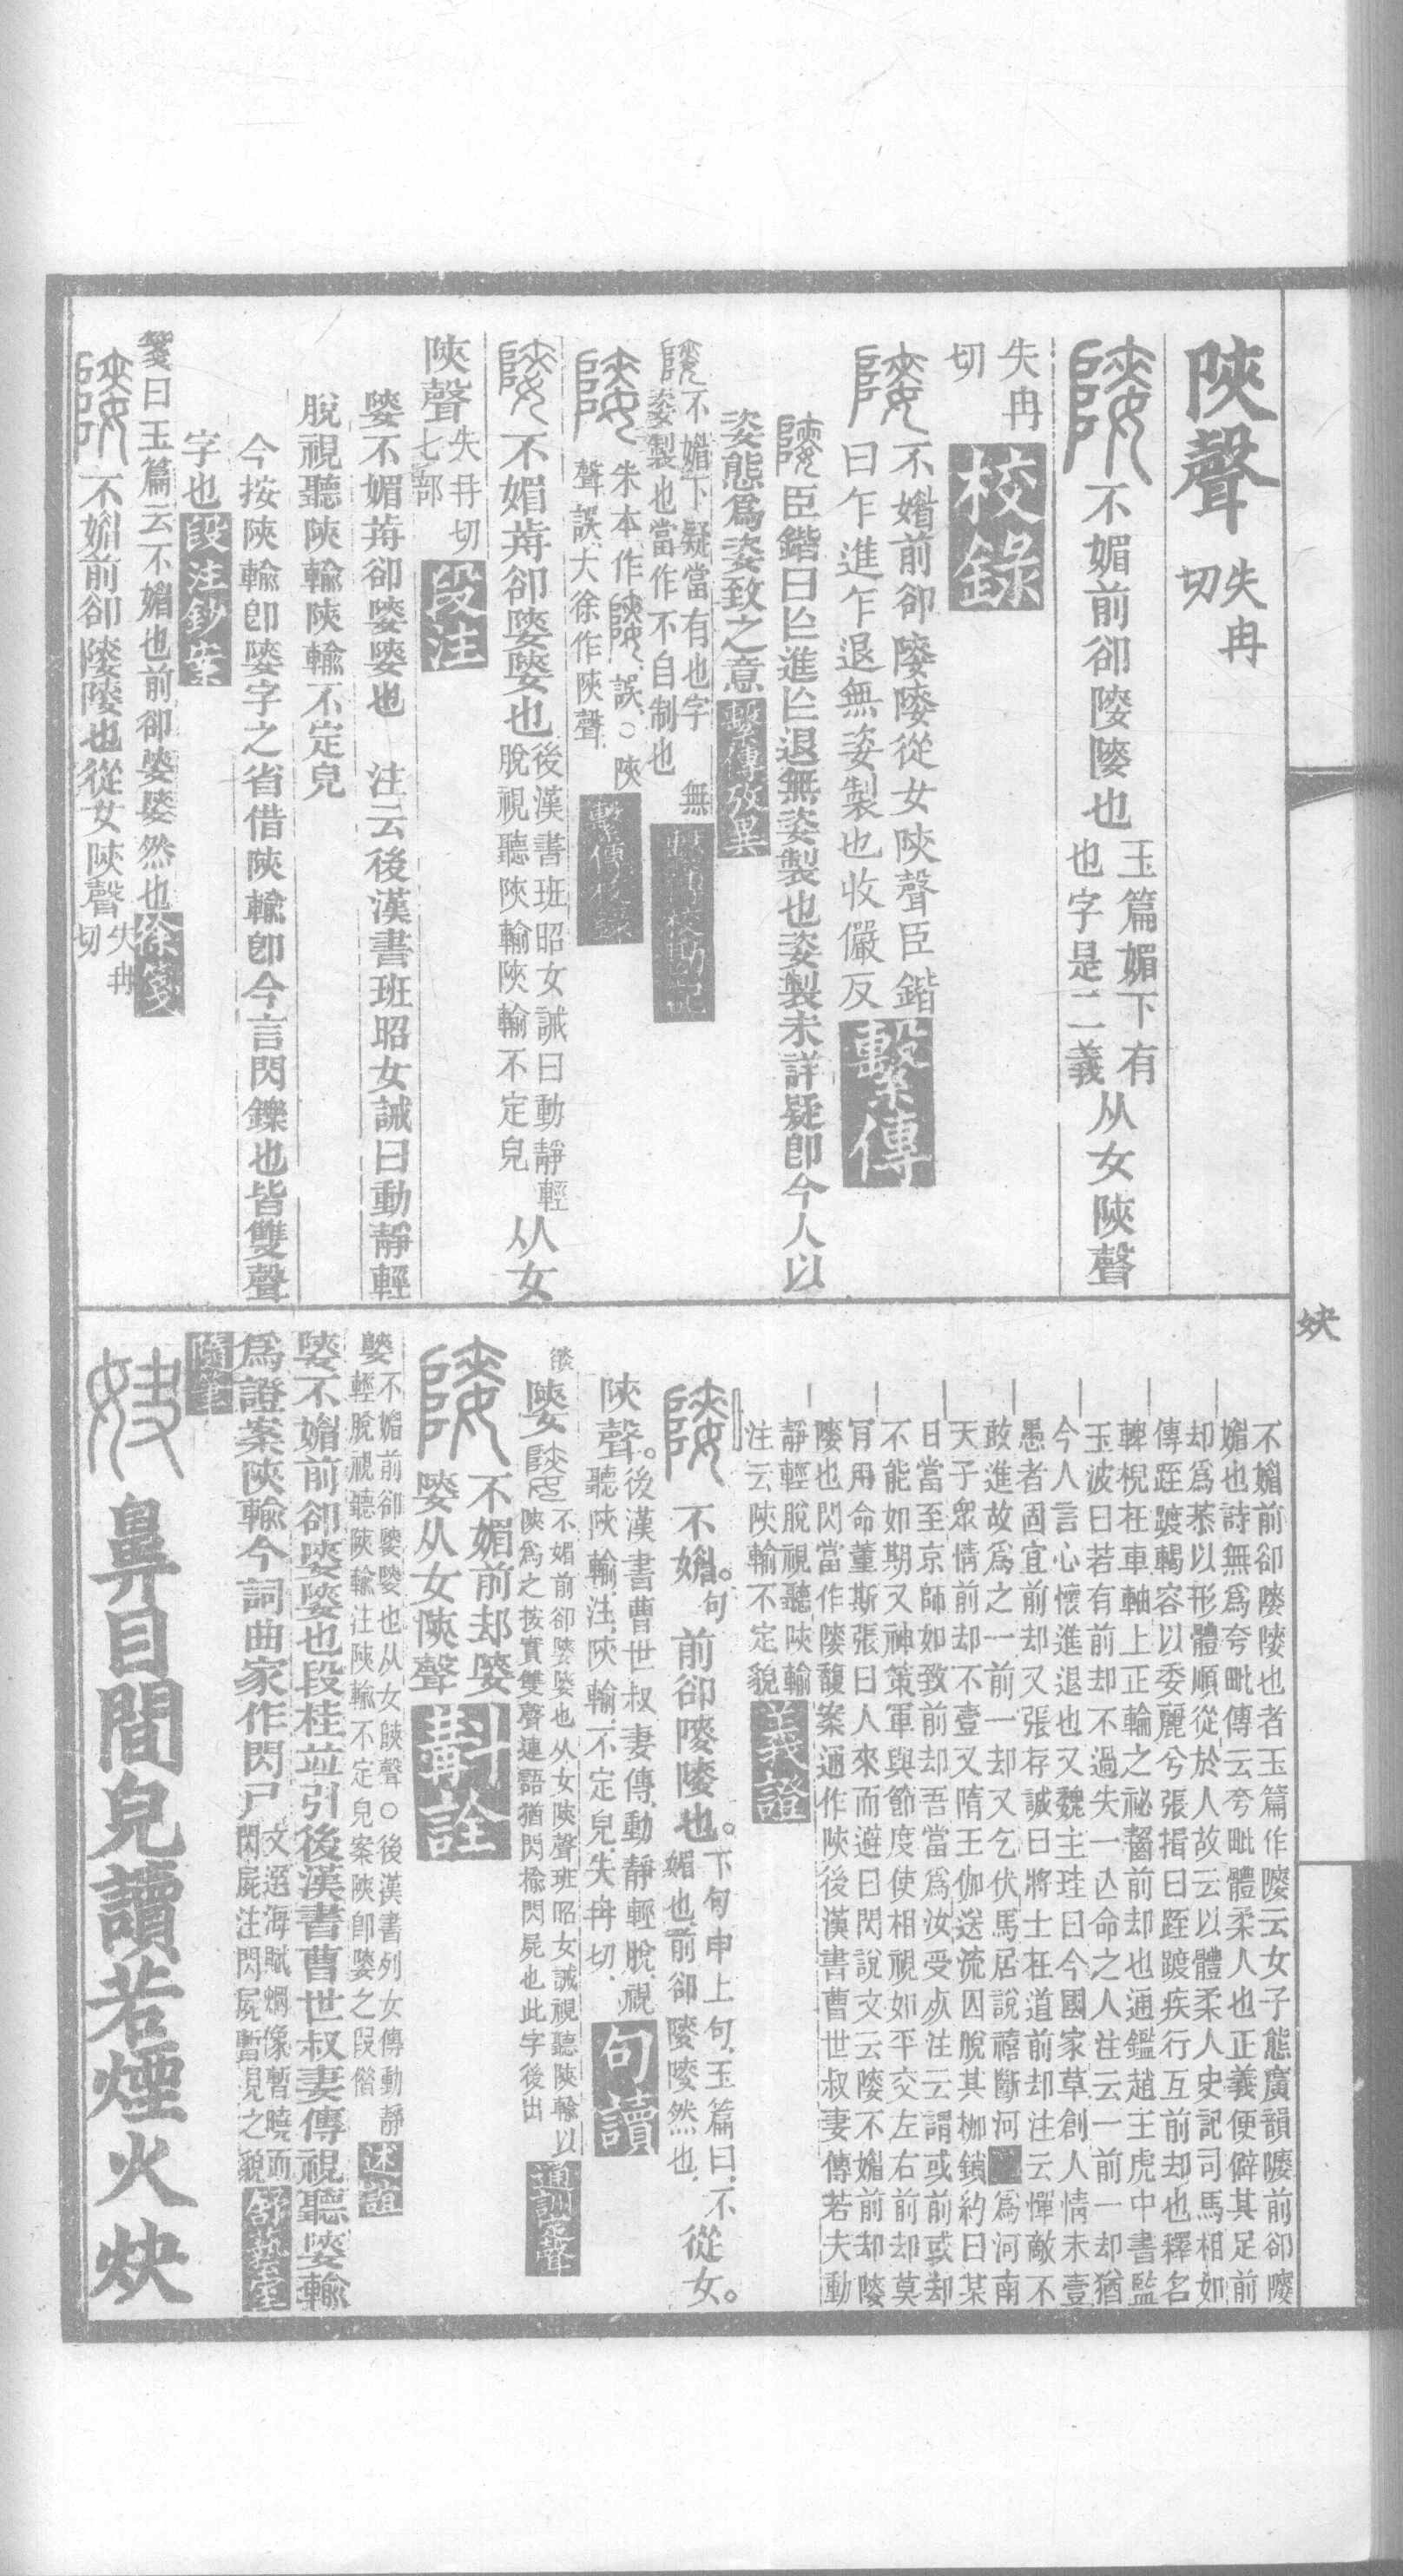 陝聲 失冉切
不媚前卻㜞㜞也 玉篇媚下有也字是二義 从女陝聲
失冉切 校錄
不媚前卻㜞㜞從女陝聲臣鍇
曰乍進乍退無姿製也收儼反 繫傳
臣鍇曰亾進亾退無姿製也姿製未詳疑卽今人以
姿態爲姿致之意 繫傳攷異
不媚下疑當有也字 無
姿製也當作不自制也 繫傳校勘記
朱本作 誤○陝
聲誤大徐作陝聲 繫傳校錄
不媚歬卻㜞㜞也 後漢書班昭女誡曰動靜輕脫視聽陝輸陝輸不定皃 从女
陝聲 失冄切七部 段注
㜞不媚歬卻㜞㜞也 注云後漢書班昭女誡曰動靜輕
脫視聽陝輸陝輸不定皃
今按陝輸卽㜞字之省借陝輸卽今言閃鑠也皆雙聲
字也 段注鈔案
箋曰玉篇云不媚也前卻㜞㜞然也 徐箋
不媚前卻㜞㜞也從女陝聲 失冉切
妜
不媚前卻㜞㜞也者玉篇作㜞云女子態廣韻㜞前卻㜞
媚也詩無爲夸毗傳云夸毗體柔人也正義便僻其足前
却爲恭以形體順從於人故云以體柔人史記司馬相如
傳跮踱輵容以委麗兮張揖曰跮踱疾行互前却也釋名
䡟輗在車軸上正輪之祕齧前却也通鑑趙王虎中書監
王波曰若有前却不過失一亾命之人注云一前一却猶
今人言心懷進退也又魏主珪曰今國家草創人情未壹
愚者固宜前却又張存誠曰將士在道前却注云憚敵不
敢進故爲之一前一却又乞伏馬居說禧斷河 爲河南
天子衆情前却不壹又隋王伽送流囚脫其枷鎖約曰某
日當至京師如致前却吾當爲汝受死注云謂或前或却
不能如期又神策軍與節度使相視如平交左右前却莫
肎用命董斯張曰人來而避曰閃說文云㜞不媚前却㜞
㜞也閃當作㜞馥案通作陝後漢書曹世叔妻傳若夫動
靜輕脫視聽陝輸
注云陝輸不定貌 義證
不媚。句前卻㜞㜞也。下句申上句、玉篇曰、不媚也、前卻㜞㜞然也、從女。
陝聲。後漢書曹世叔妻傳、動靜輕脫、視聽陝輸、注、陝輸、不定皃、失冉切、 句讀
㜞 不媚前卻㜞㜞也从女陝聲班昭女誡視聽陝輸以陝爲之按實雙聲連語猶閃揄閃屍也此字後出 通訓定聲
不媚前却㜞
㜞从女陝聲 斠詮
㜞 不媚前卻㜞㜞也从女陝聲○後漢書列女傳動靜輕脫視聽陝輸注陝輸不定皃案陝卽㜞之叚借 述誼
㜞不媚前卻㜞㜞也段桂竝引後漢書曹世叔妻傳視聽㜞輸
爲證案陝輸今詞曲家作閃尸 文選海賦蝄像暫曉而閃屍注閃屍暫見之貌 舒埶室
隨筆
鼻目間皃讀若煙火炔